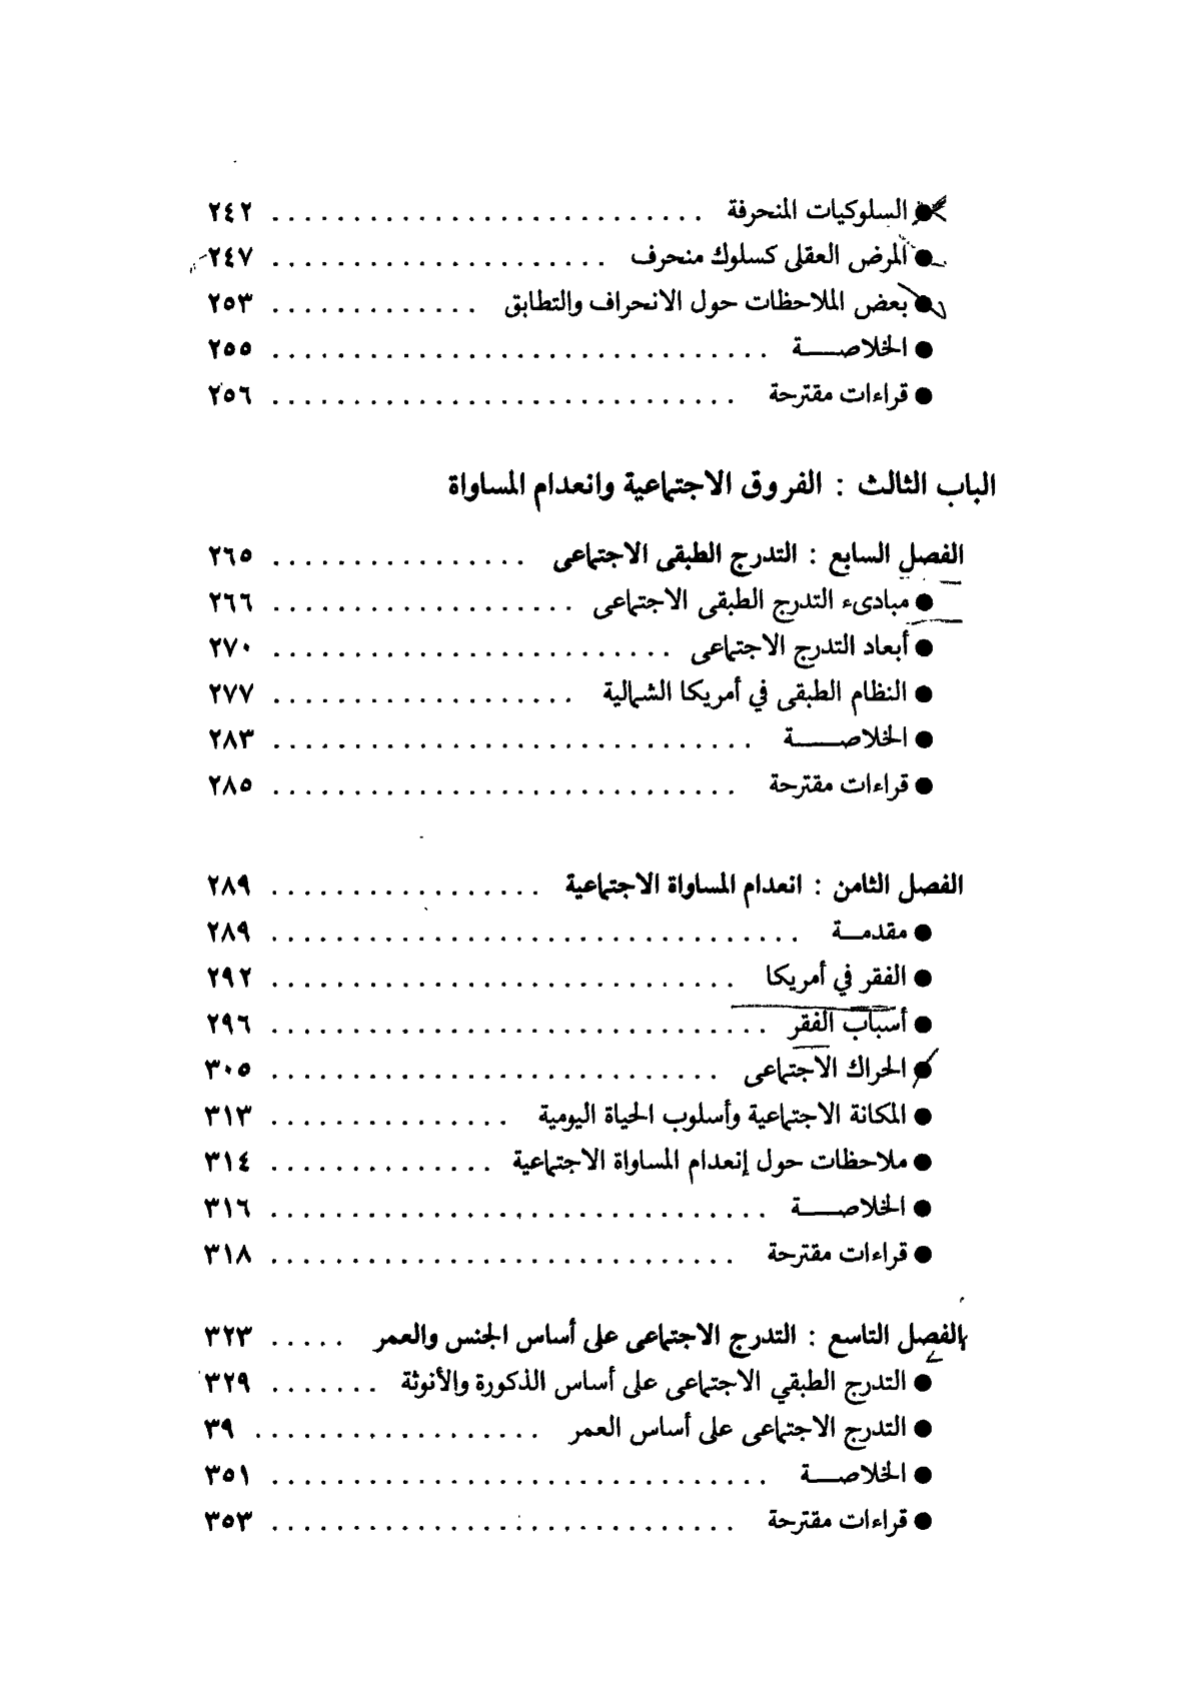 ● السلوكيات المنحرفة ........................... ٢٤٢
● المرض العقلى كسلوك منحرف ..................... ٢٤٧
● بعض الملاحظات حول الانحراف والتطابق ............. ٢٥٣
● الخلاصـــة ............................... ٢٥٥
● قراءات مقترحة ............................. ٢٥٦
الباب الثالث : الفروق الاجتماعية وانعدام المساواة
الفصل السابع : التدرج الطبقى الاجتماعى ................ ٢٦٥
● مبادىء التدرج الطبقى الاجتماعى ................... ٢٦٦
● أبعاد التدرج الاجتماعى ......................... ٢٧٠
● النظام الطبقى في أمريكا الشمالية ................... ٢٧٧
● الخلاصـــة .............................. ٢٨٣
● قراءات مقترحة ............................. ٢٨٥
الفصل الثامن : انعدام المساواة الاجتماعية ................. ٢٨٩
● مقدمـــة ................................. ٢٨٩
● الفقر في أمريكا ............................. ٢٩٢
● أسباب الفقر ............................... ٢٩٦
● الحراك الاجتماعى ............................ ٣٠٥
● المكانة الاجتماعية وأسلوب الحياة اليومية ............... ٣١٣
● ملاحظات حول إنعدام المساواة الاجتماعية .............. ٣١٤
● الخلاصـــة ............................... ٣١٦
● قراءات مقترحة ............................. ٣١٨
الفصل التاسع : التدرج الاجتماعى على أساس الجنس والعمر ..... ٣٢٣
● التدرج الطبقي الاجتماعى على أساس الذكورة والأنوثة ....... ٣٢٩
● التدرج الاجتماعى على أساس العمر .................. ٣٩
● الخلاصـــة ............................... ٣٥١
● قراءات مقترحة ............................. ٣٥٣